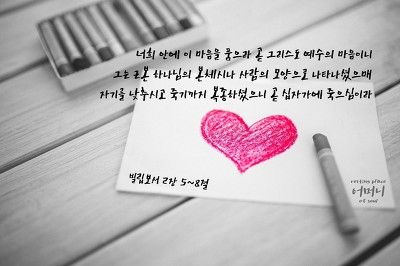 너희 안에 이 마음을 품으라 곧 그리스도 예수의 마음이니
그는 근본 하나님의 본체시나 사람의 모양으로 나타나셨으매
자기를 낮추시고 죽기까지 복종하셨으니 곧 십자가에 죽으심이라
빌립보서 2장 5~8절
resting place
어머니
of soul